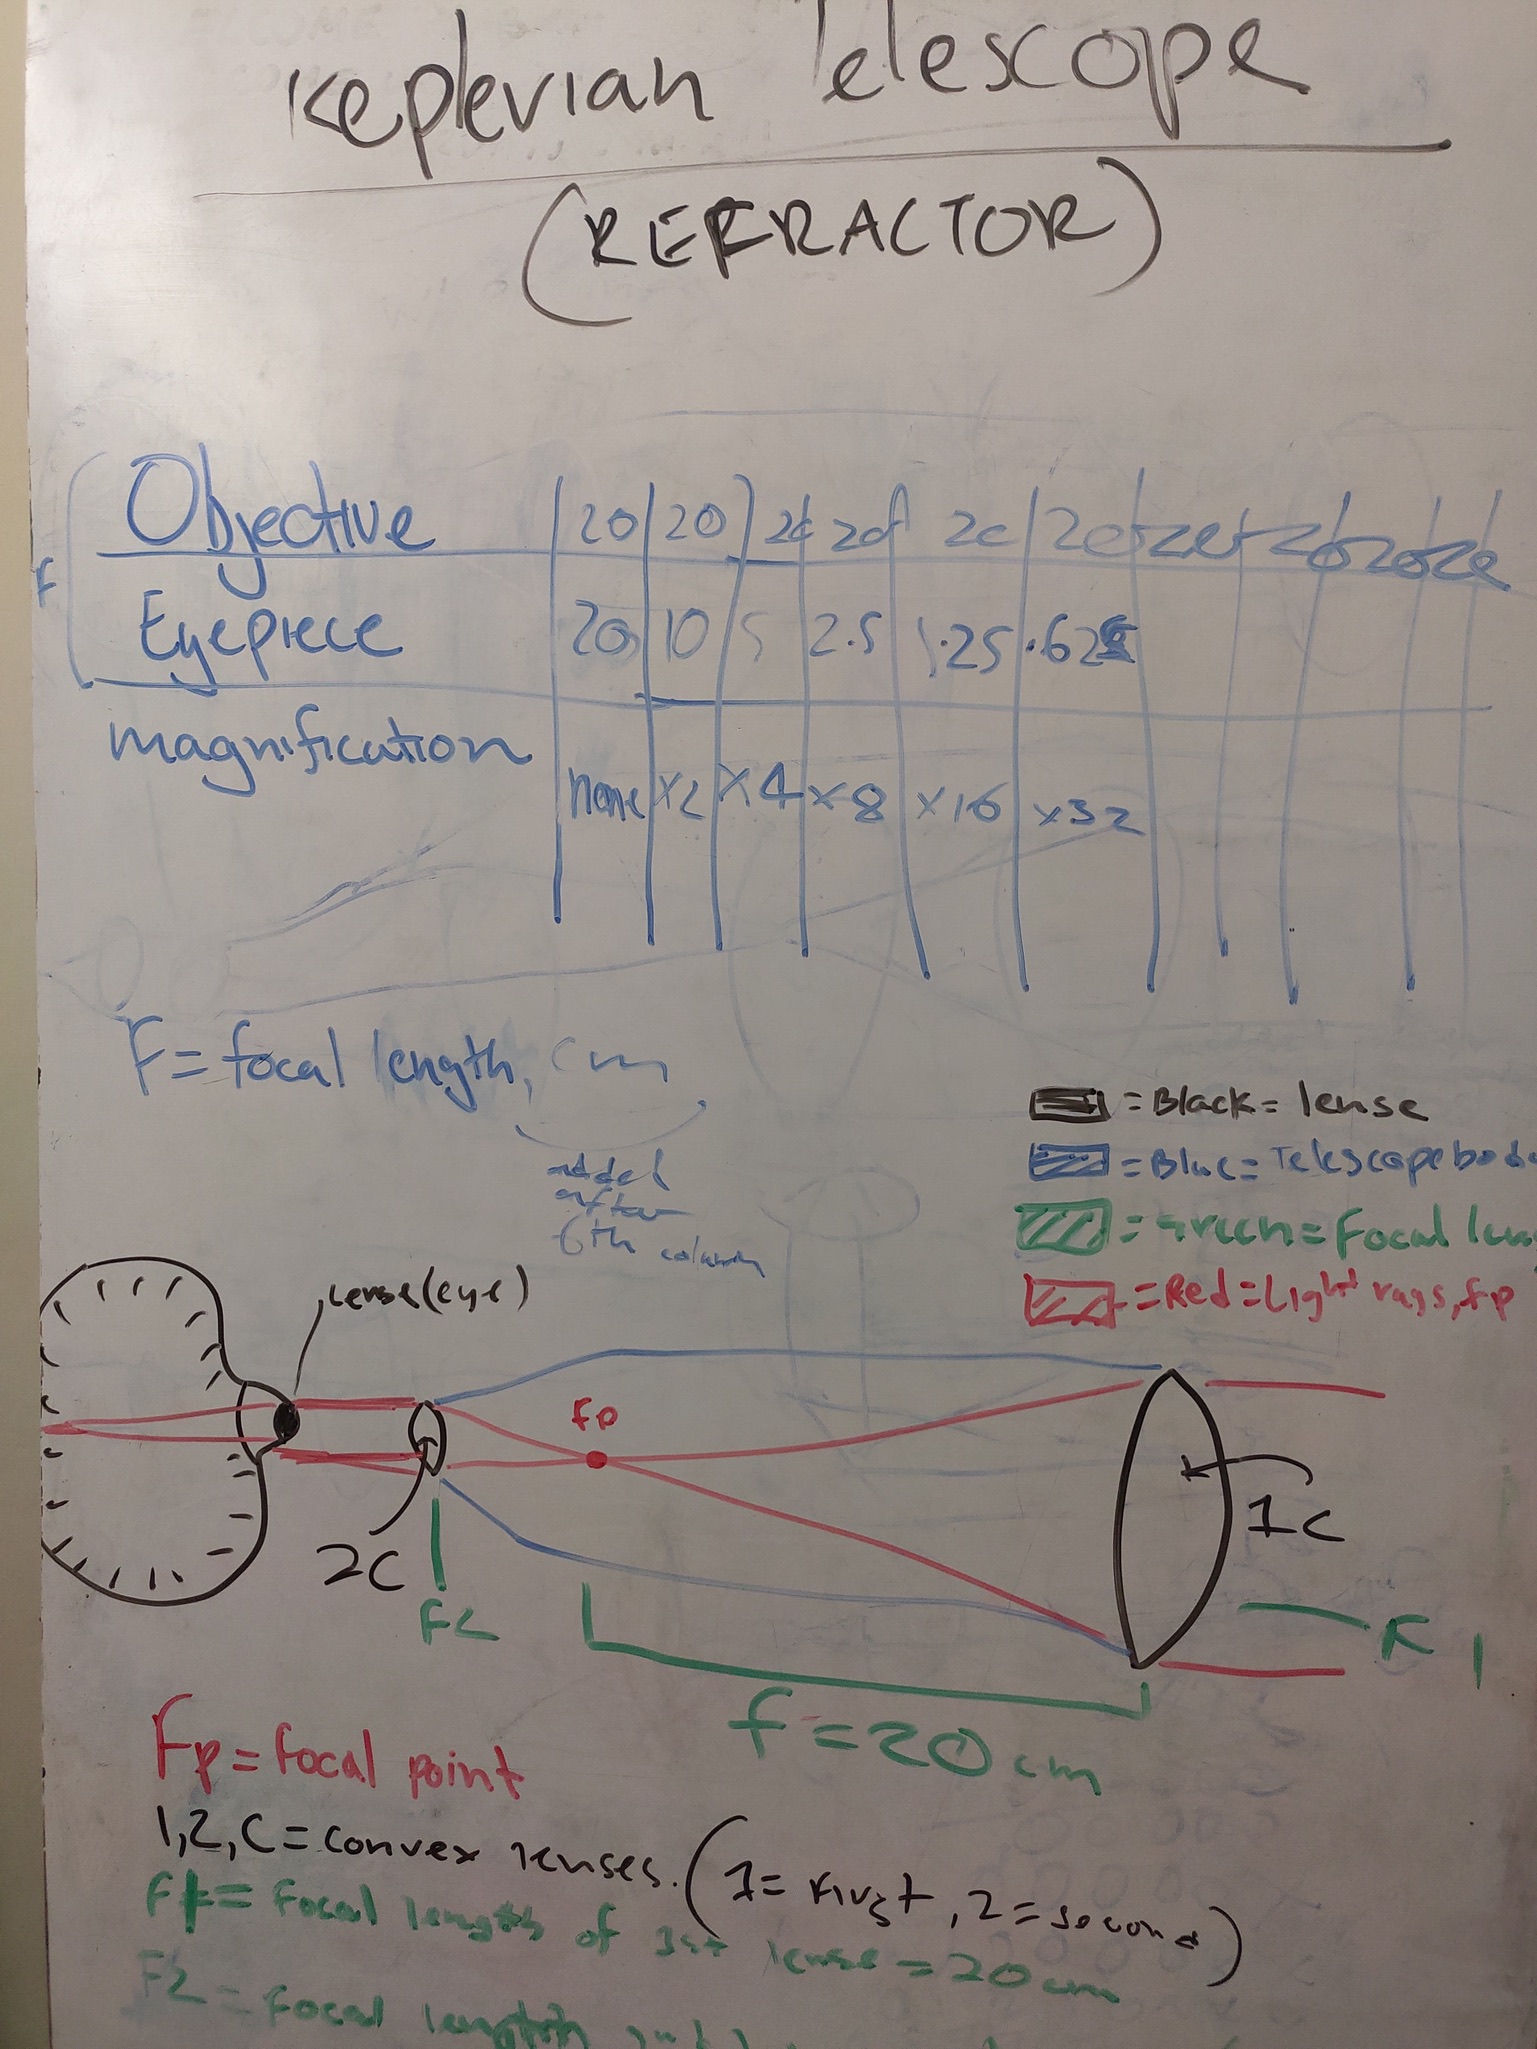 Keplerian Telescope
(REFRACTOR)
F
Objective 20 20 20 20 20 20 20 20 20 20
Eyepiece 20 10 5 2.5 1.25 .625
magnification none ×2 ×4 ×8 ×16 ×32
F = focal length, cm
added
after
6th column
= Black = lense
= Blue = Telescope bod
= Green = Focal len
= Red = Light rays, fp
lense (eye)
Fp
2C
1C
F2
F1
f = 20 cm
Fp = focal point
1,2, C = convex lenses. (1 = first, 2 = second)
F1 = Focal length of 1st lense = 20 cm
F2 = Focal length